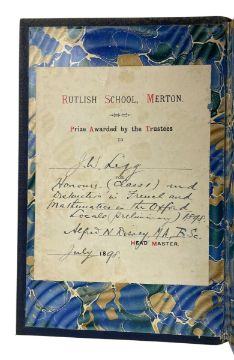 RUTLISH SCHOOL, MERTON.
Prize Awarded by the Trustees
TO
J. W. Legg
Honours (Class I) and
Distinction in French and
Mathematics in the Oxford
Locals (Preliminary) 1898.
Alfred N. Disney M.A. B.Sc.
HEAD MASTER.
July 1898.